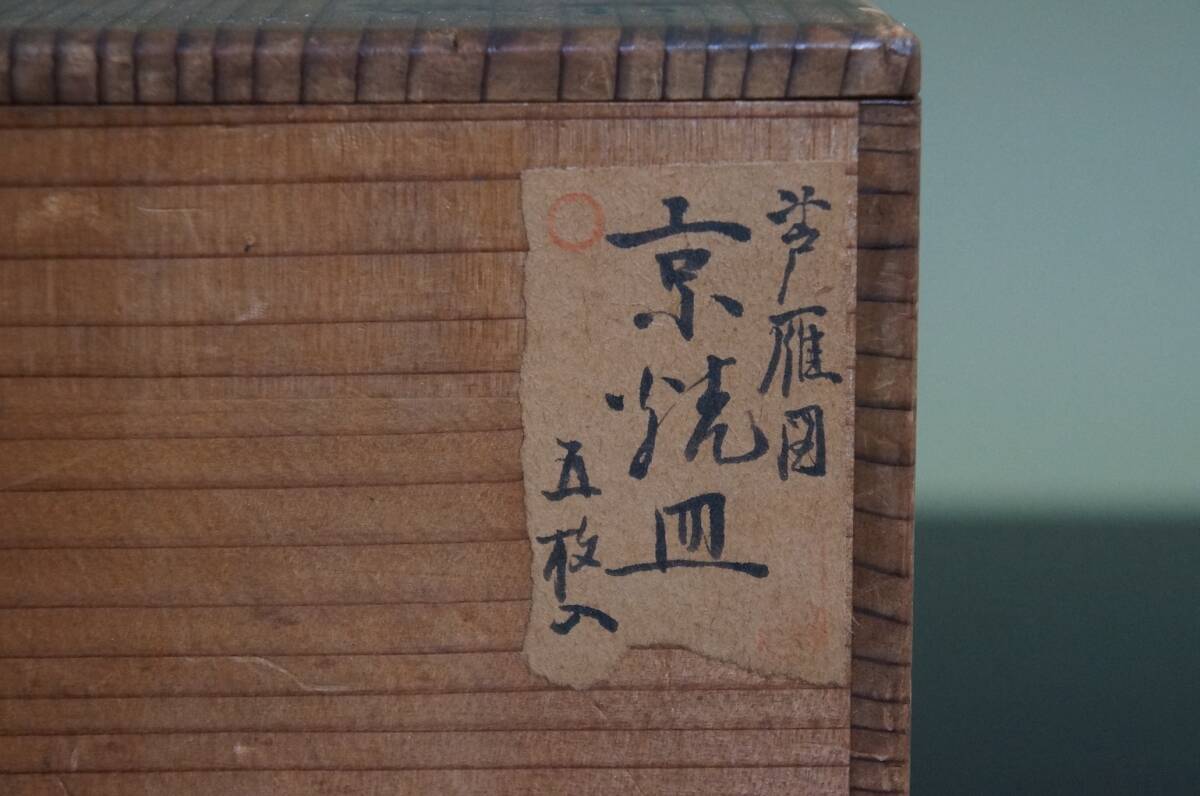 芦雁図
京焼皿
五枚入